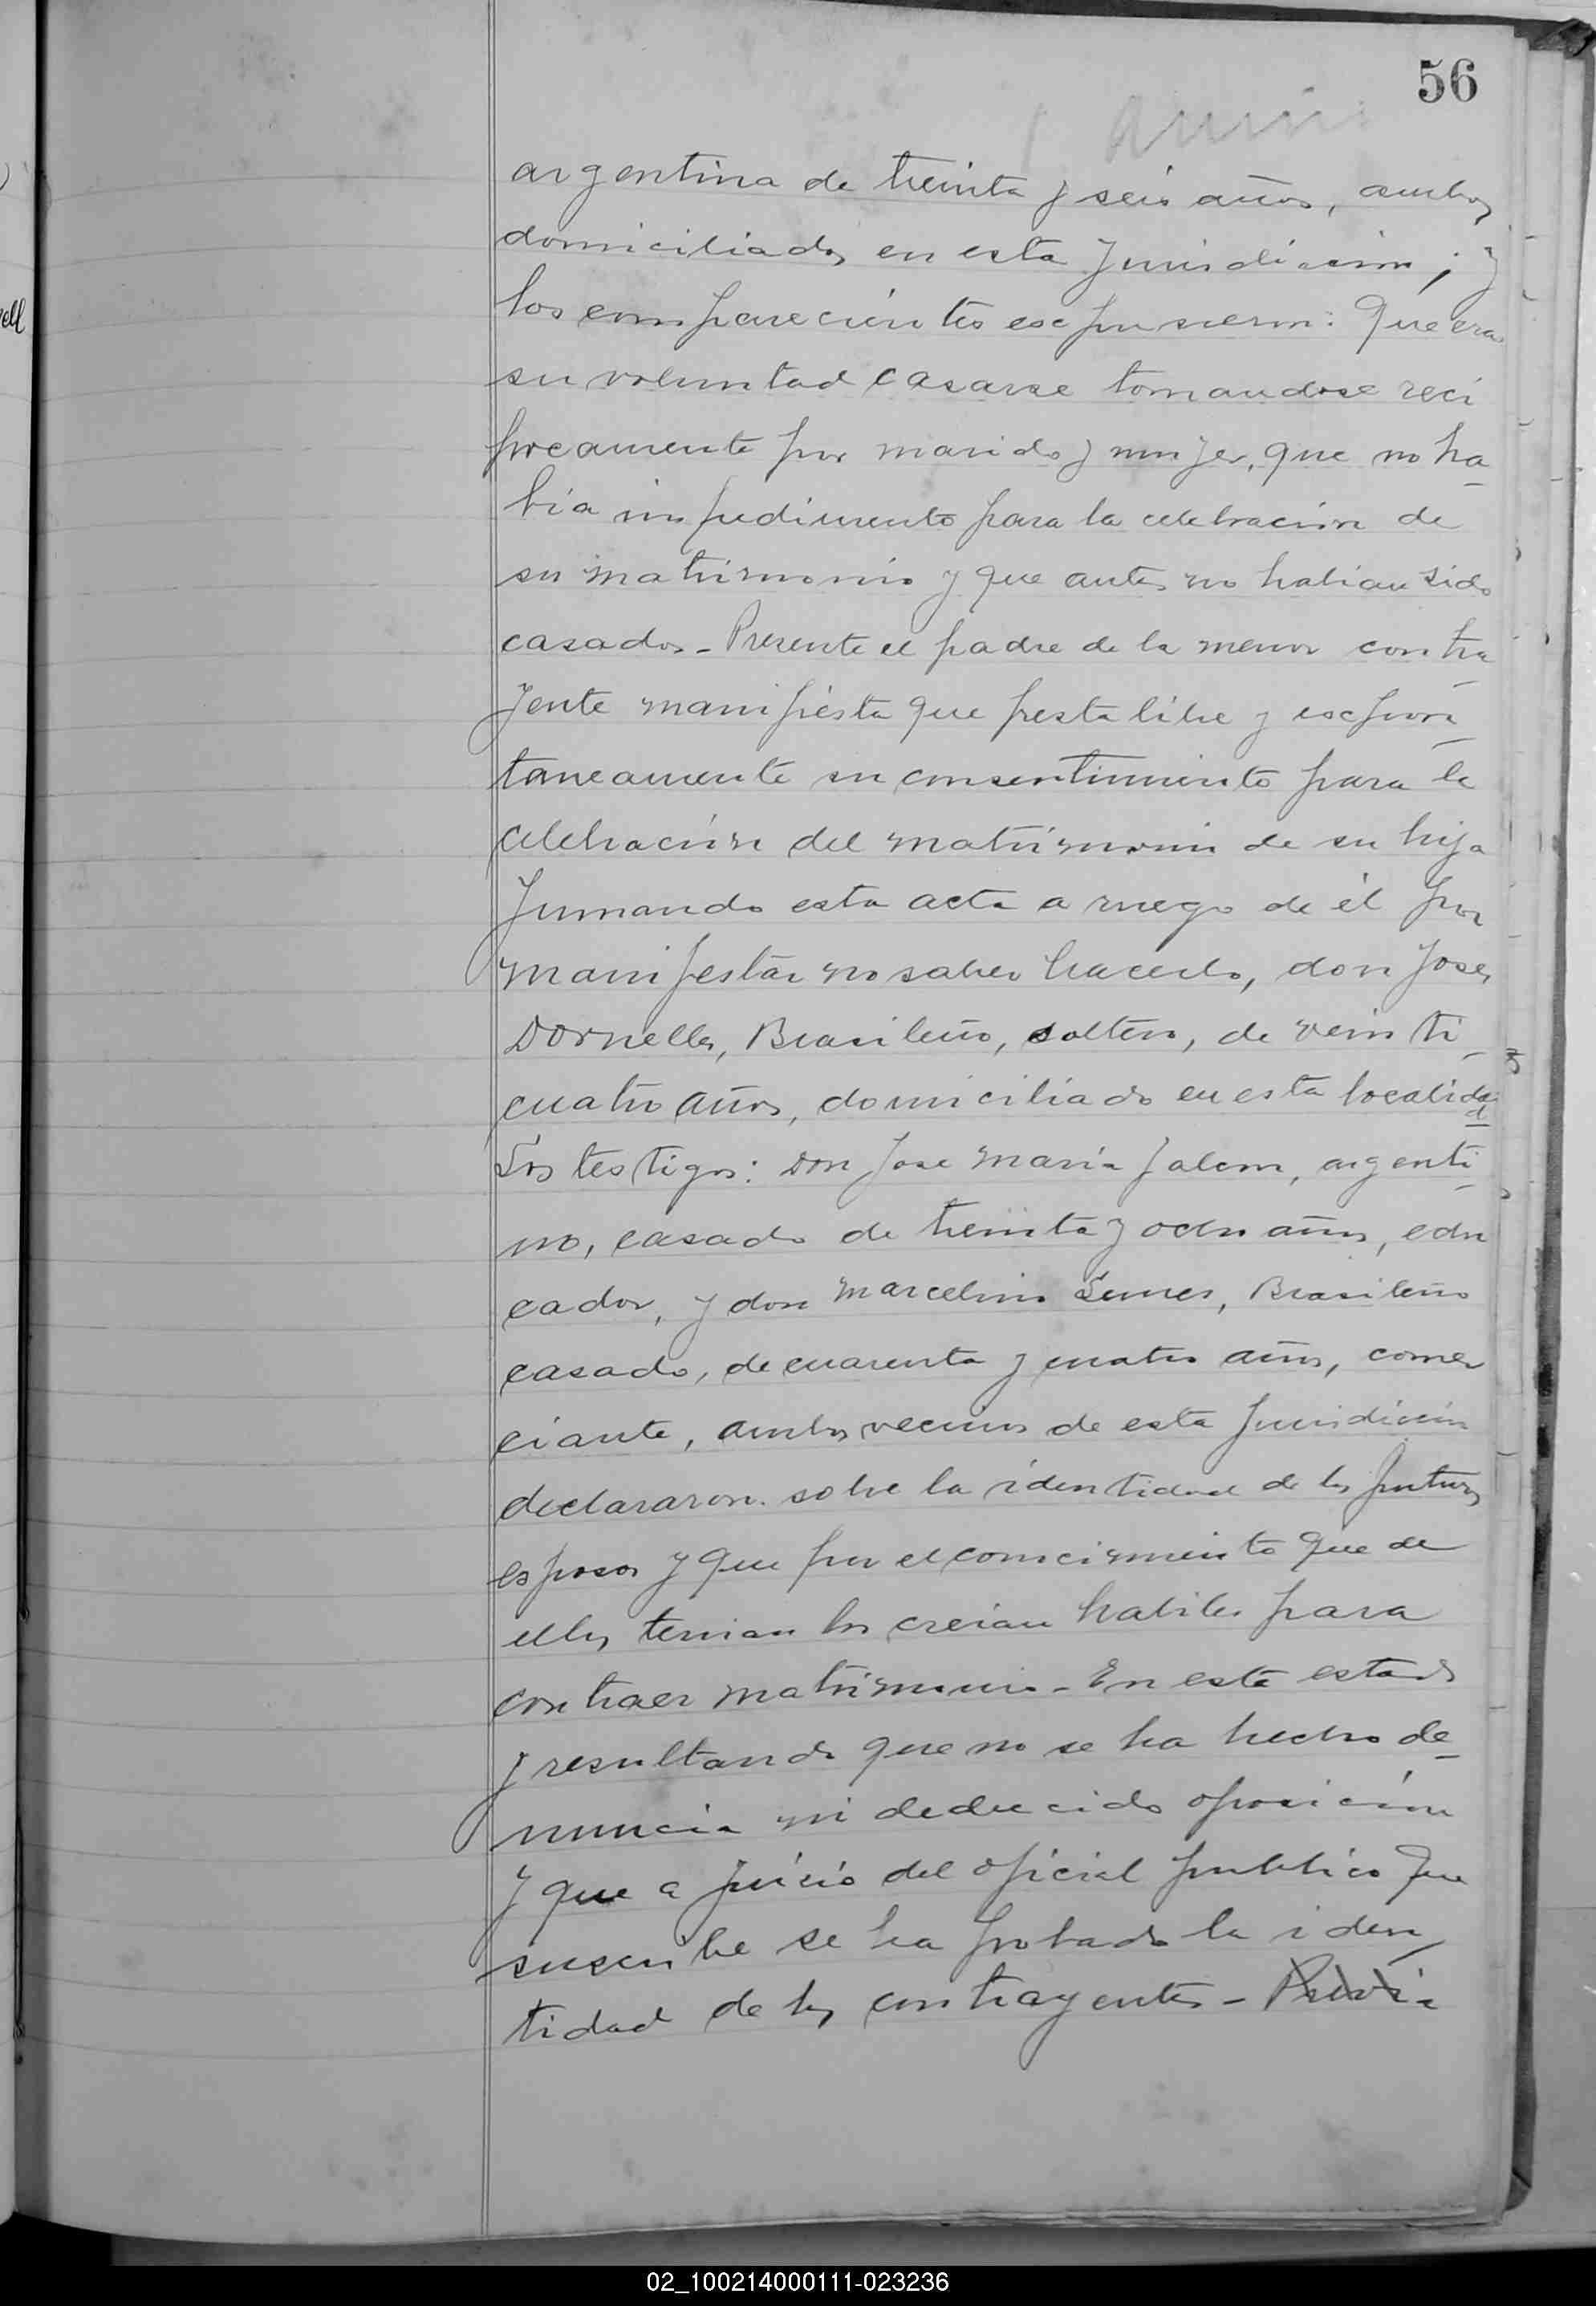 56
argentina de treinta y seis años, ambos
domiciliados en esta jurisdiccion; y
los comparecientes expusieron: Que era
su voluntad casarse tomandose reci
procamente por marido y mujer, que no ha-
bia impedimento para la celebración de
su matrimonio y que antes no habian sido
casados - Presente el padre de la menor contra-
yente manifiesta que presta libre y espon-
taneamente su consentimiento para la
celebración del matrimonio de su hija
firmando esta acta a ruego de él por
manifestar no saber hacerlo, don Jose
Dornelles, Brasileño, soltero, de veinti-
cuatro años, domiciliado en esta localidad
Los testigos: Don Jose Maria argenti-
no, casado de treinta y ocho años, edu
cador, y don Marcelino Brasileño
casado, de cuarenta y cuatro años, comer
ciante, ambos vecinos de esta jurisdicción
declararon sobre la identidad de los futuros
esposos y que por el conocimiento que de
ellos tenian los creian habiles para
contraer matrimonio - En este estado
y resultando que no se ha hecho de-
nuncia ni deducido oposición
y que a juicio del oficial publico que
suscribe se ha probado la iden
tidad de los contrayentes -
02_100214000111-023236